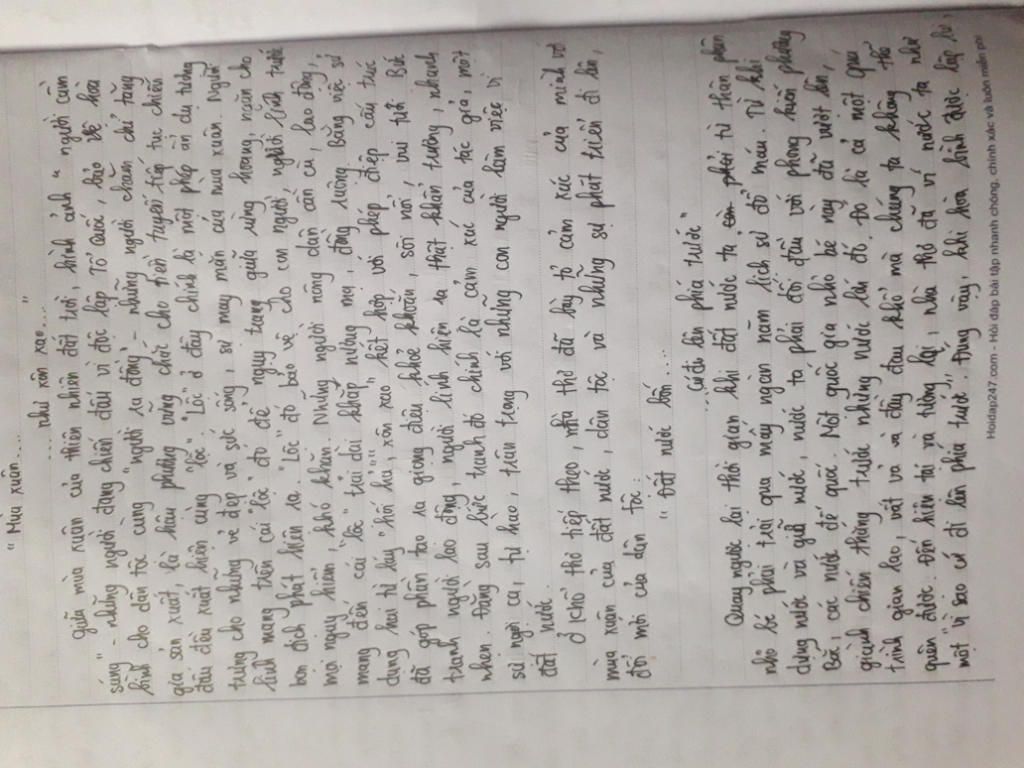 "Mùa xuân...
... như xôn xao...."
giữa mùa xuân của thiên nhiên đất trời, hình ảnh "người cầm
súng" - những người đang chiến đấu vì độc lập Tổ Quốc, bảo vệ hòa
bình cho dân tộc cùng "người ra đồng" - những người chăm chỉ tăng
gia sản xuất, là hậu phương vững chắc cho tiền tuyến tiếp tục chiến
đấu đều xuất hiện cùng "lộc". "Lộc" ở đây chính là một phép ẩn dụ tượng
trưng cho những vẻ đẹp và sức sống, sự may mắn của mùa xuân. Người
lính mang trên cái "lộc" đó để nguỵ trang giữa rừng hoang, ngăn cho
bọn địch phát hiện ra. "Lộc" đó bảo vệ cho con người, người lính trước
mọi nguy hiểm, khó khăn. Những người nông dân cần cù, lao động,
mang đến cái "lộc" trải dài khắp nương mạ, đồng ruộng. Bằng việc sử
dụng hai từ láy "hối hả, xôn xao" kết hợp với phép điệp cấu trúc
đã góp phần tạo ra giọng điệu khoẻ khoắn, sôi nổi, vui tươi. Bức
tranh người lao động, người lính hiện ra thật khẩn trương, nhanh
nhẹn. Đằng sau bức tranh đó chính là cảm xúc của tác giả, một
sự ngợi ca, tự hào, trân trọng với những con người làm việc vì
đất nước.
Ở khổ thơ tiếp theo, nhà thơ đã bày tỏ cảm xúc của mình với
mùa xuân của đất nước, dân tộc và những sự phát triển đi lên,
đổi mới của dân tộc:
"Đất nước bốn...
...Cứ đi lên phía trước"
Quay ngược lại thời gian khi đất nước ta phải từ thân phận
nhỏ bé phải trải qua mấy ngàn năm lịch sử đổ máu. Từ khi
dựng nước và giữ nước, nước ta phải đối đầu với phong kiến phương
Bắc, các nước đế quốc. Một quốc gia nhỏ bé nay đã vượt lên,
giành chiến thắng trước những nước lớn đó. Đó là cả một quá
trình gian lao, vất vả và đầy đau khổ mà chúng ta không thể
quên được. Đến hiện tại và tương lai, nhà thơ đã ví nước ta như
một "vì sao cứ đi lên phía trước". Đúng vậy, khi hòa bình được lập lại,
Hoidap247.com - Hỏi đáp bài tập nhanh chóng, chính xác và luôn miễn phí